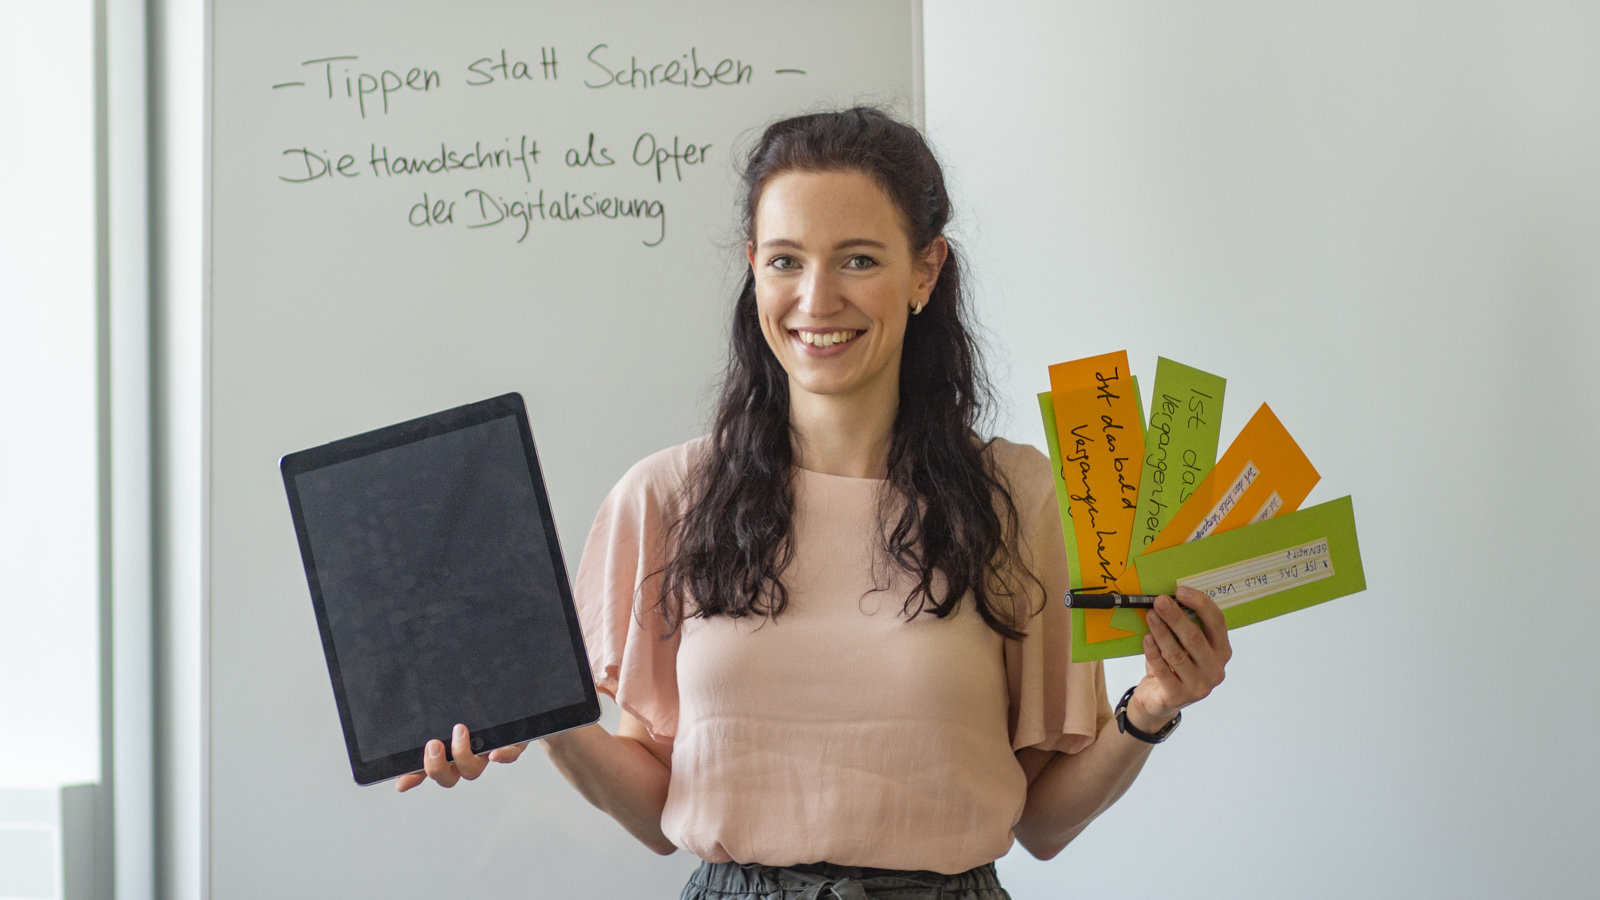 – Tippen statt Schreiben –
Die Handschrift als Opfer
der Digitalisierung
Ist das bald
Vergangenheit
Ist das
Vergangenheit
* IST DAS BALD
GENHEIT?